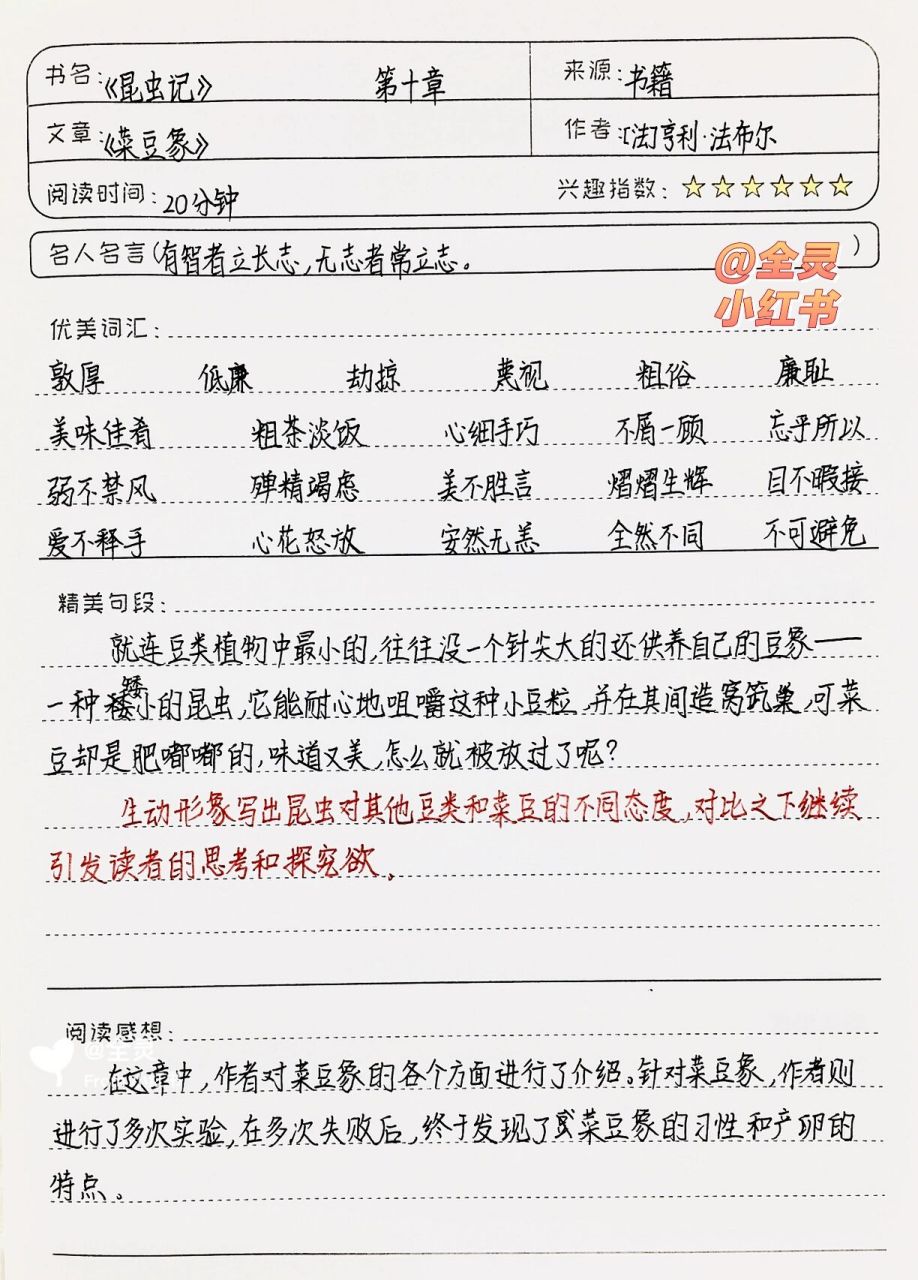 书名:《昆虫记》 第十章 来源:书籍
文章:《菜豆象》 作者:[法]亨利·法布尔
阅读时间:20分钟 兴趣指数:☆☆☆☆☆☆
名人名言(有智者立长志,无志者常立志。)
@全灵
小红书
优美词汇:
敦厚 低廉 劫掠 蔑视 粗俗 廉耻
美味佳肴 粗茶淡饭 心细手巧 不屑一顾 忘乎所以
弱不禁风 殚精竭虑 美不胜言 熠熠生辉 目不暇接
爱不释手 心花怒放 安然无恙 全然不同 不可避免
精美句段:
就连豆类植物中最小的,往往没一个针尖大的还供养自己的豆象——
一种矮小的昆虫,它能耐心地咀嚼这种小豆粒,并在其间造窝筑巢,可菜
豆却是肥嘟嘟的,味道又美,怎么就被放过了呢?
生动形象写出昆虫对其他豆类和菜豆的不同态度,对比之下继续
引发读者的思考和探究欲。
阅读感想:
@全灵
在文章中,作者对菜豆象的各个方面进行了介绍。针对菜豆象,作者则
进行了多次实验,在多次失败后,终于发现了菜豆象的习性和产卵的
特点。